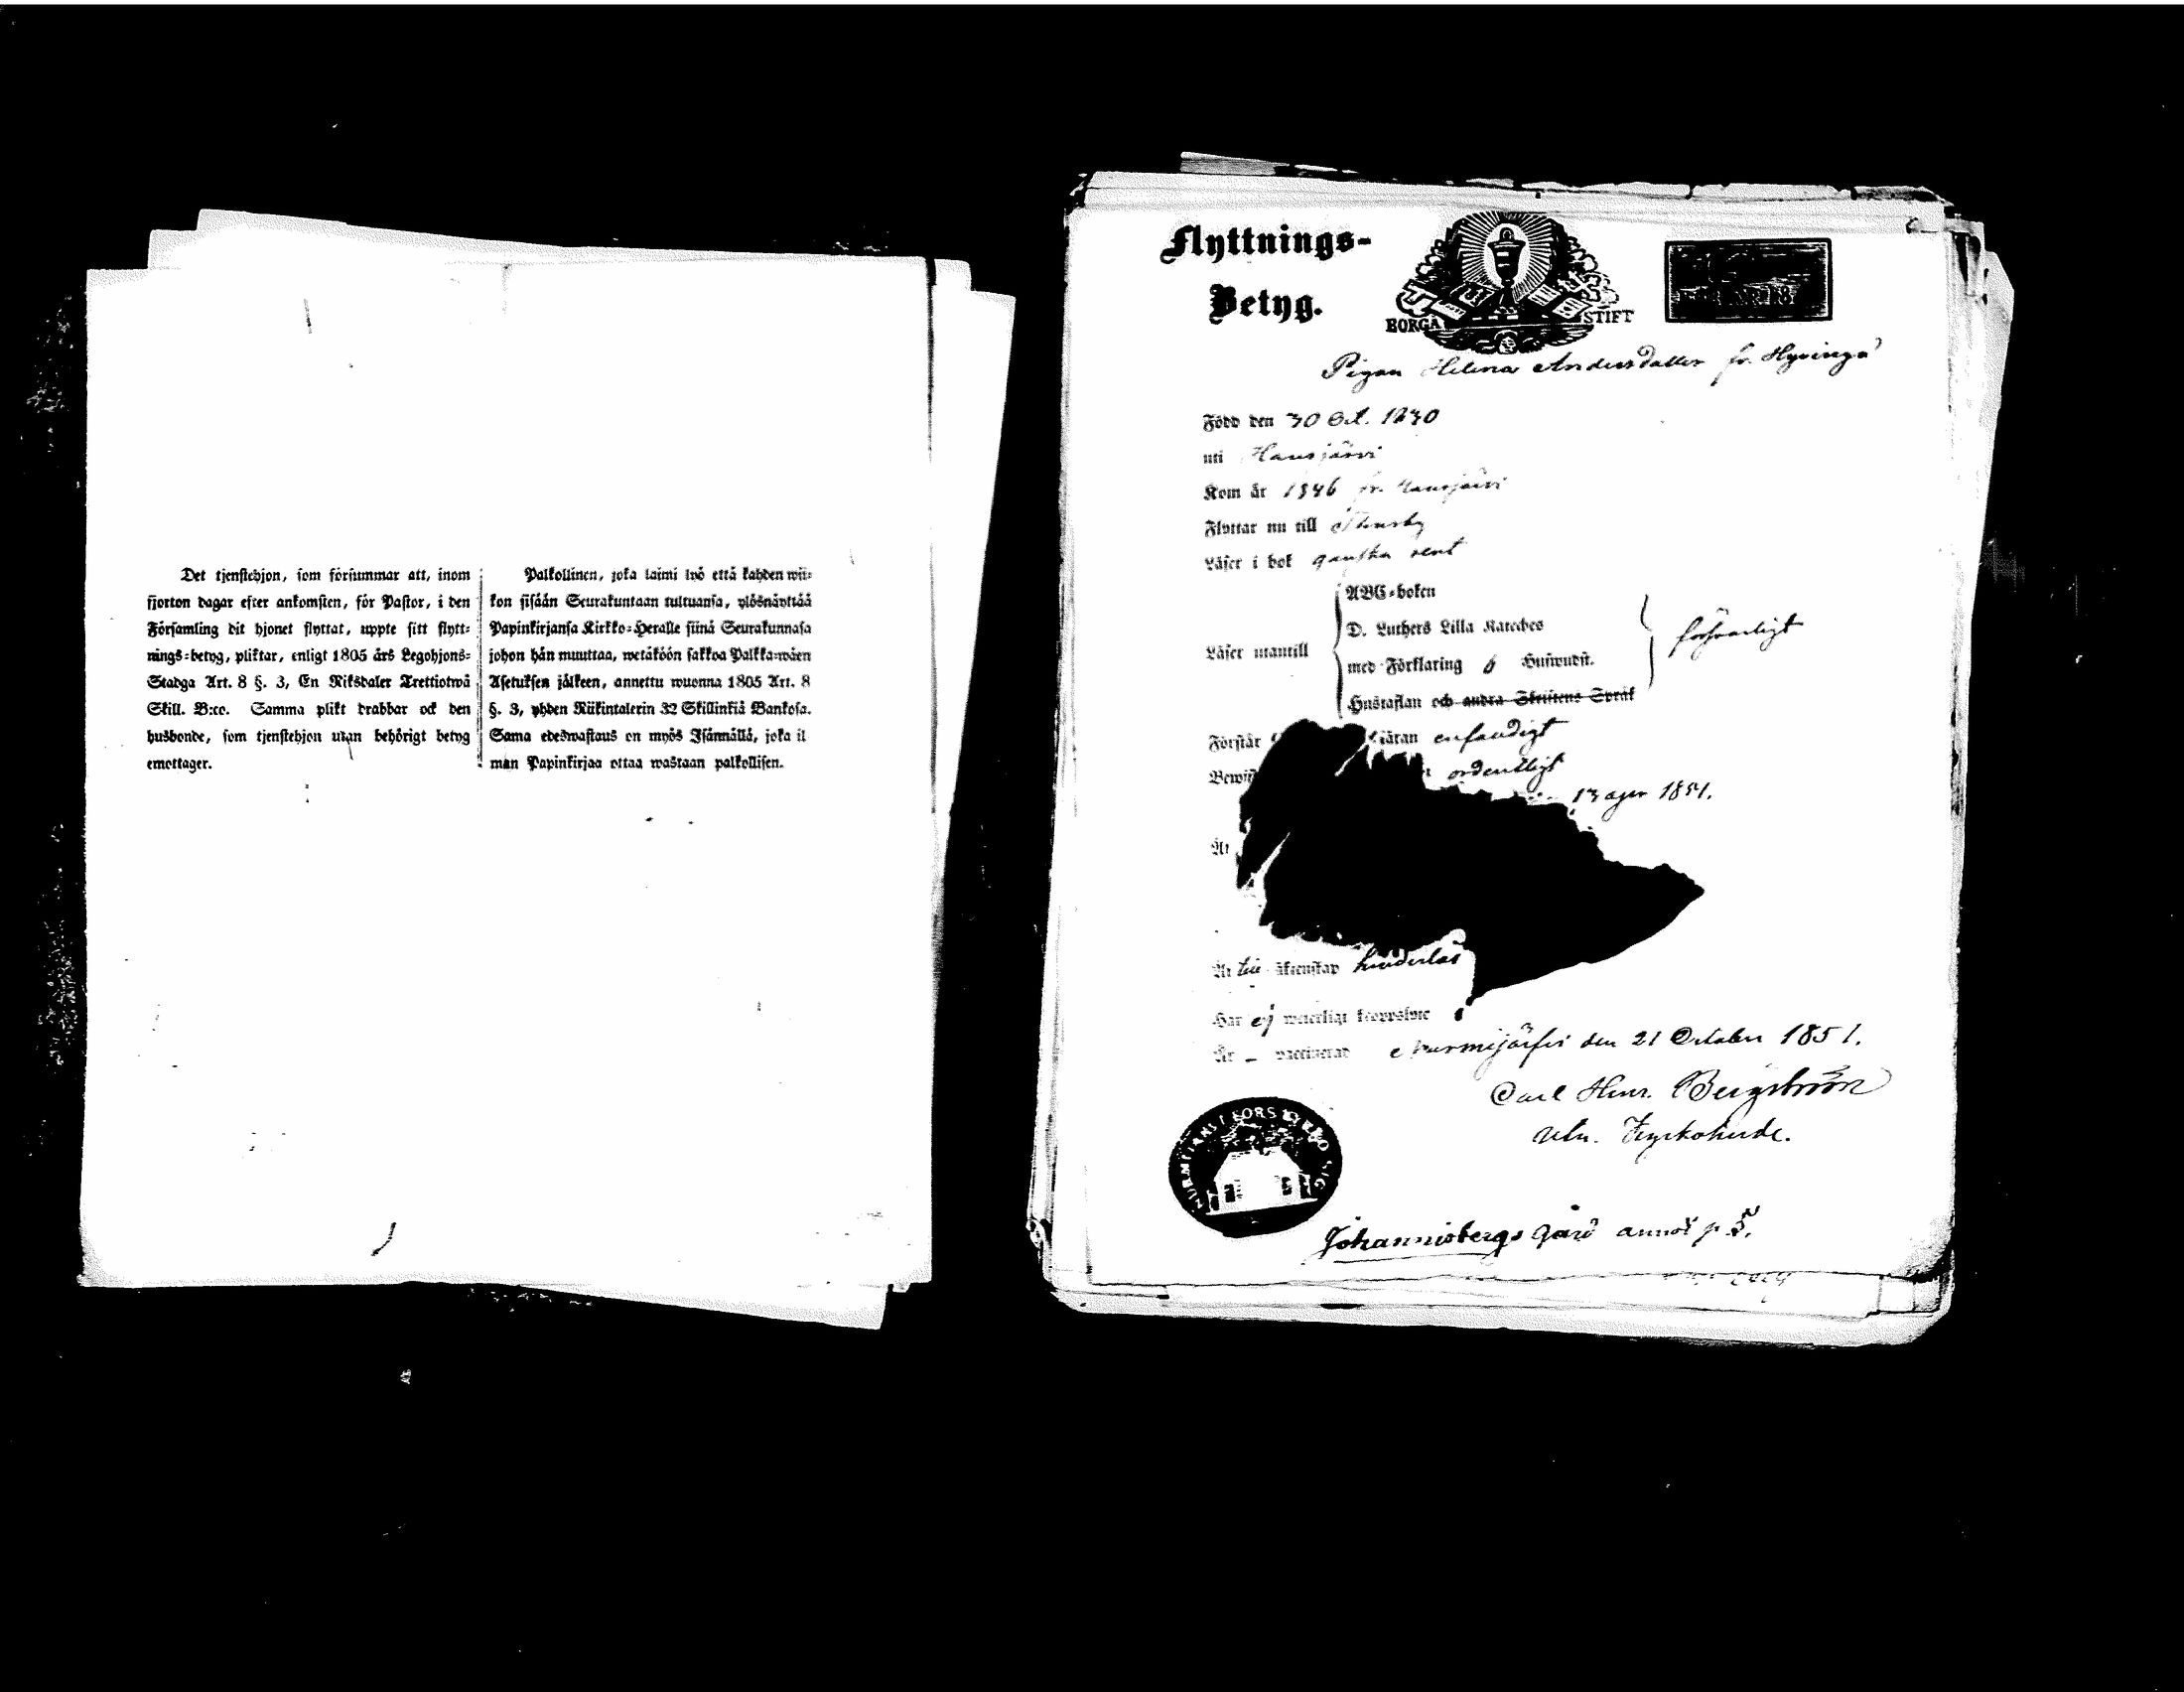 Det tjenstehjon, som försummar att, inom
fjorton dagar efter ankomsten, för Pastor, i den
Församling dit hjonet flyttat, uppte sitt flytt-
nings-betyg, pliktar, enligt 1805 års Legohjons-
Stadga Art. 8 §. 3, En Riksdaler Trettiotwå
Skill. B:co. Samma plikt drabbar ock den
husbonde, som tjenstehjon utan behörigt betyg
emottager.
Palkollinen, joka laimi lyö että kahden wii-
kon sisään Seurakuntaan tultuansa, ylösnäyttää
Papinkirjansa Kirkko-Heralle siinä Seurakunnasa
johon hän muuttaa, wetäköön sakkoa Palkka-wäen
Asetuksen jälkeen, annettu wuonna 1805 Art. 8
§. 3, yhden Riikintalerin 32 Skillinkiä Bankosa.
Sama edeswastaus on myös Isännällä, joka il
man Papinkirjaa ottaa wastaan palkollisen.
Flyttnings-
Betyg.
BORGÅ STIFT
Pigan Helena Andersdotter fr. Hyvingä
Född den 30 Oct. 1830
uti Hausjärvi
Kom år 1846 fr. Hausjärvi
Flyttar nu till
Läser i bok ganska rent
Läser utantill
ABC-boken
D. Luthers Lilla Kateches
med Förklaring 6 Huswudst.
Hustaflan och andra Skriftens Språk
försvarligt
Förstår enfaldigt
Bewis ordentligt
13 1851.
Är
Är till äktenskap hinderlös
Har ej weterligt kroppslyte
Är – vaccinerad Nurmijärfvi den 21 October 1851.
Carl Henr. Bergström
Kyrkoherde.
Johannisbergs gård annot p.